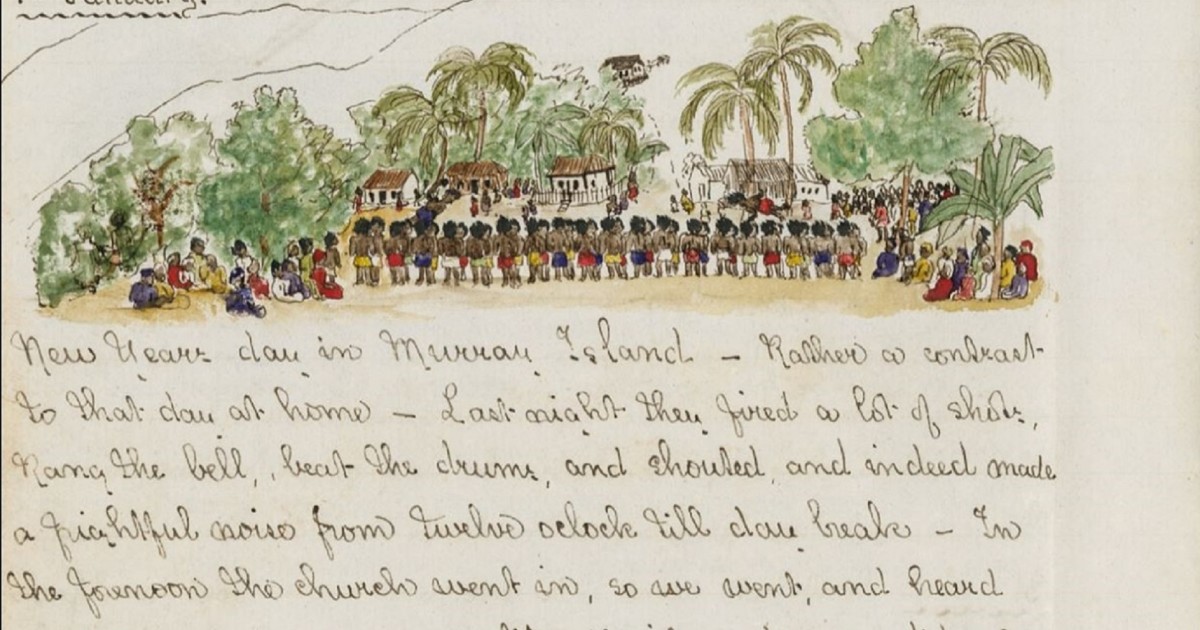 New Years day in Murray Island – Rather a contrast
to that day at home – Last night they fired a lot of shots,
Rang the bell, beat the drums, and shouted, and indeed made
a frightful noise from twelve oclock till day break – In
the forenoon the church went in, so we went, and heard